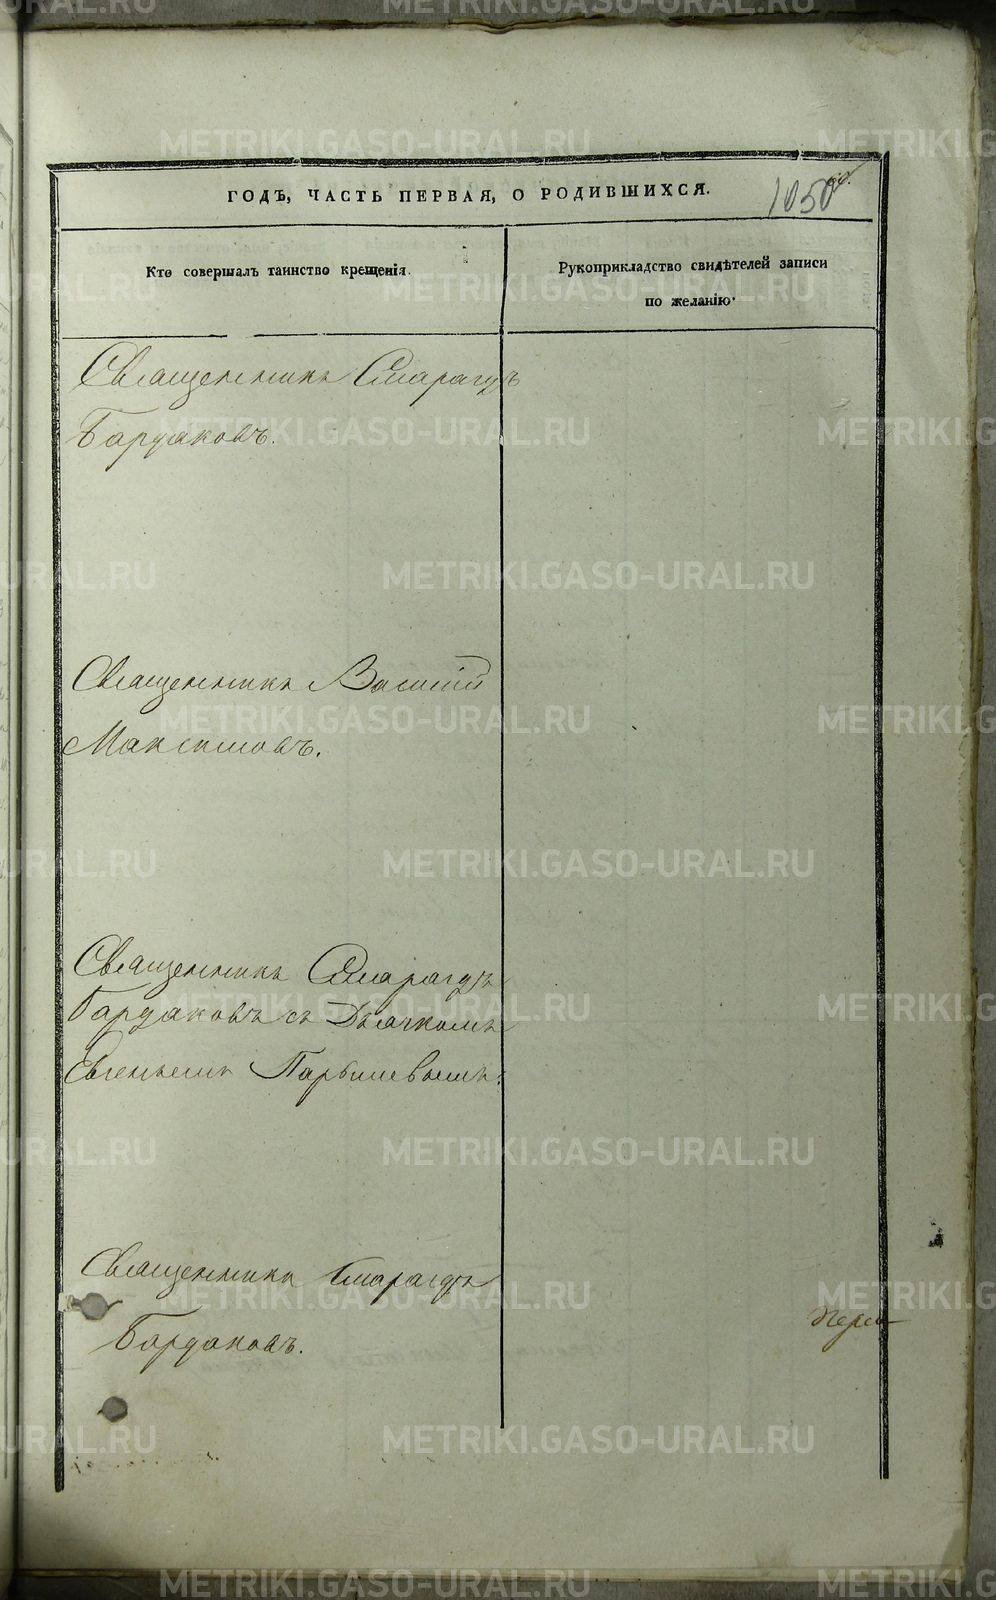 ГОДЪ, ЧАСТЬ ПЕРВАЯ, О РОДИВШИХСЯ.
1050
Кто совершалъ таинство крещенія.
Рукоприкладство свидѣтелей записи
по желанію.
Священникъ Смарагдъ
Бардаковъ.
Священникъ Василій
Максимовъ.
Священникъ Смарагдъ
Бардаковъ съ Дьячкомъ
Евгеньемъ Парышевымъ.
Священникъ Смарагдъ
Бардаковъ.
METRIKI.GASO-URAL.RU